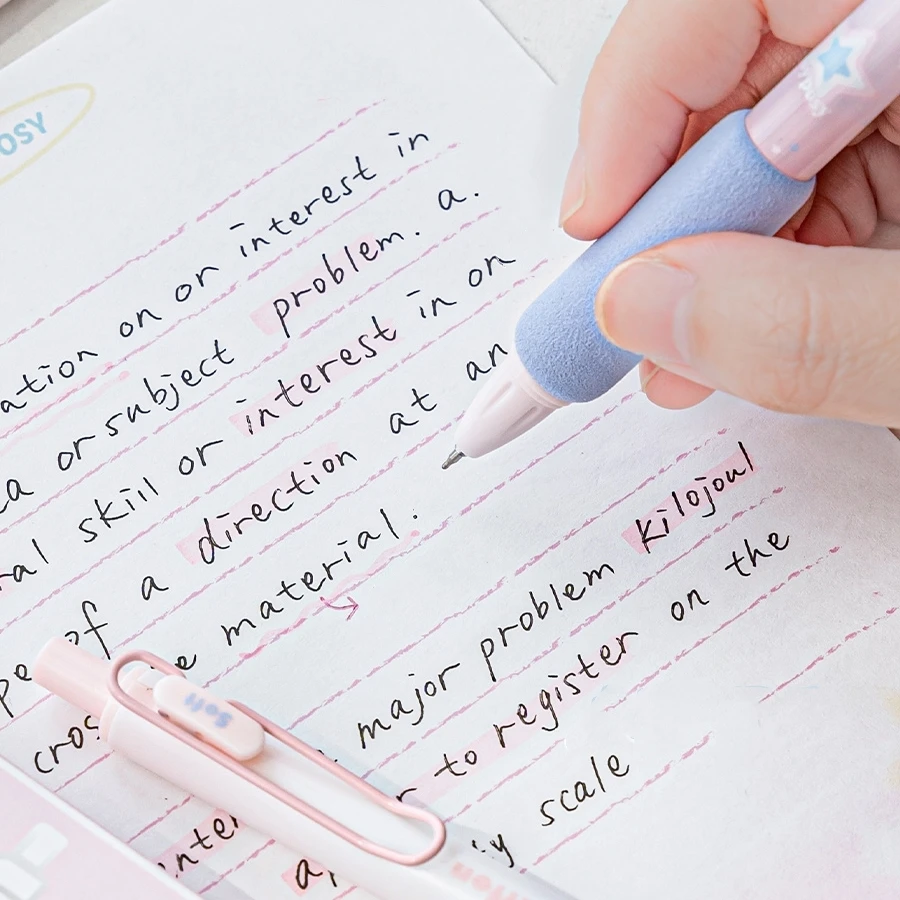 OSY
ation on or interest in
ea or subject problem. a.
ral skill or interest in on
pe of a direction at an
e material.
cros major problem kilojoul
inter r to register on the
ap y scale
Soft